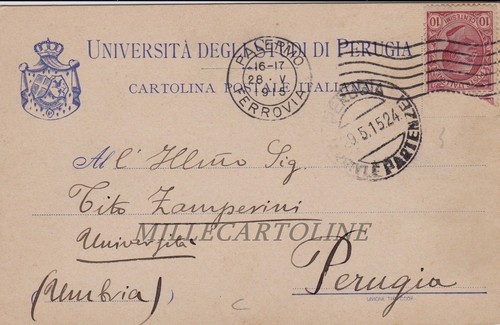 UNIVERSITÀ DEGLI STUDI DI PERUGIA
CARTOLINA POSTALE ITALIANA
PALERMO
16-17
28·V
1915
FERROVIA
10
CENTESIMI
10
5.15.24
PARTENZE
All'Illmo Sig.
Tito Zamperini
Università
MILLECARTOLINE
(Umbria)
Perugia